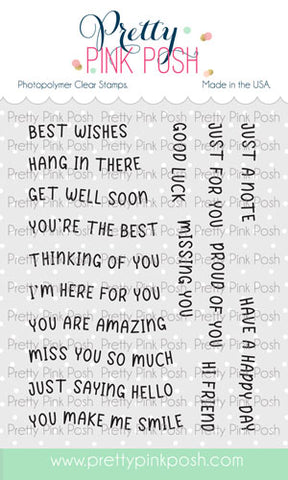 Pretty
PINK POSH
Photopolymer Clear Stamps.
Made in the USA.
BEST WISHES
HANG IN THERE
GET WELL SOON
YOU'RE THE BEST
THINKING OF YOU
I'M HERE FOR YOU
YOU ARE AMAZING
MISS YOU SO MUCH
JUST SAYING HELLO
YOU MAKE ME SMILE
GOOD LUCK
MISSING YOU
JUST FOR YOU
PROUD OF YOU
HI FRIEND
JUST A NOTE
HAVE A HAPPY DAY
www.prettypinkposh.com